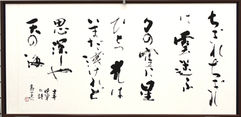 ちぎれちぎれ
に雲迷ふ
夕の空に星
ひとつ光は
いまだ浅けれど
思深しや
天の海